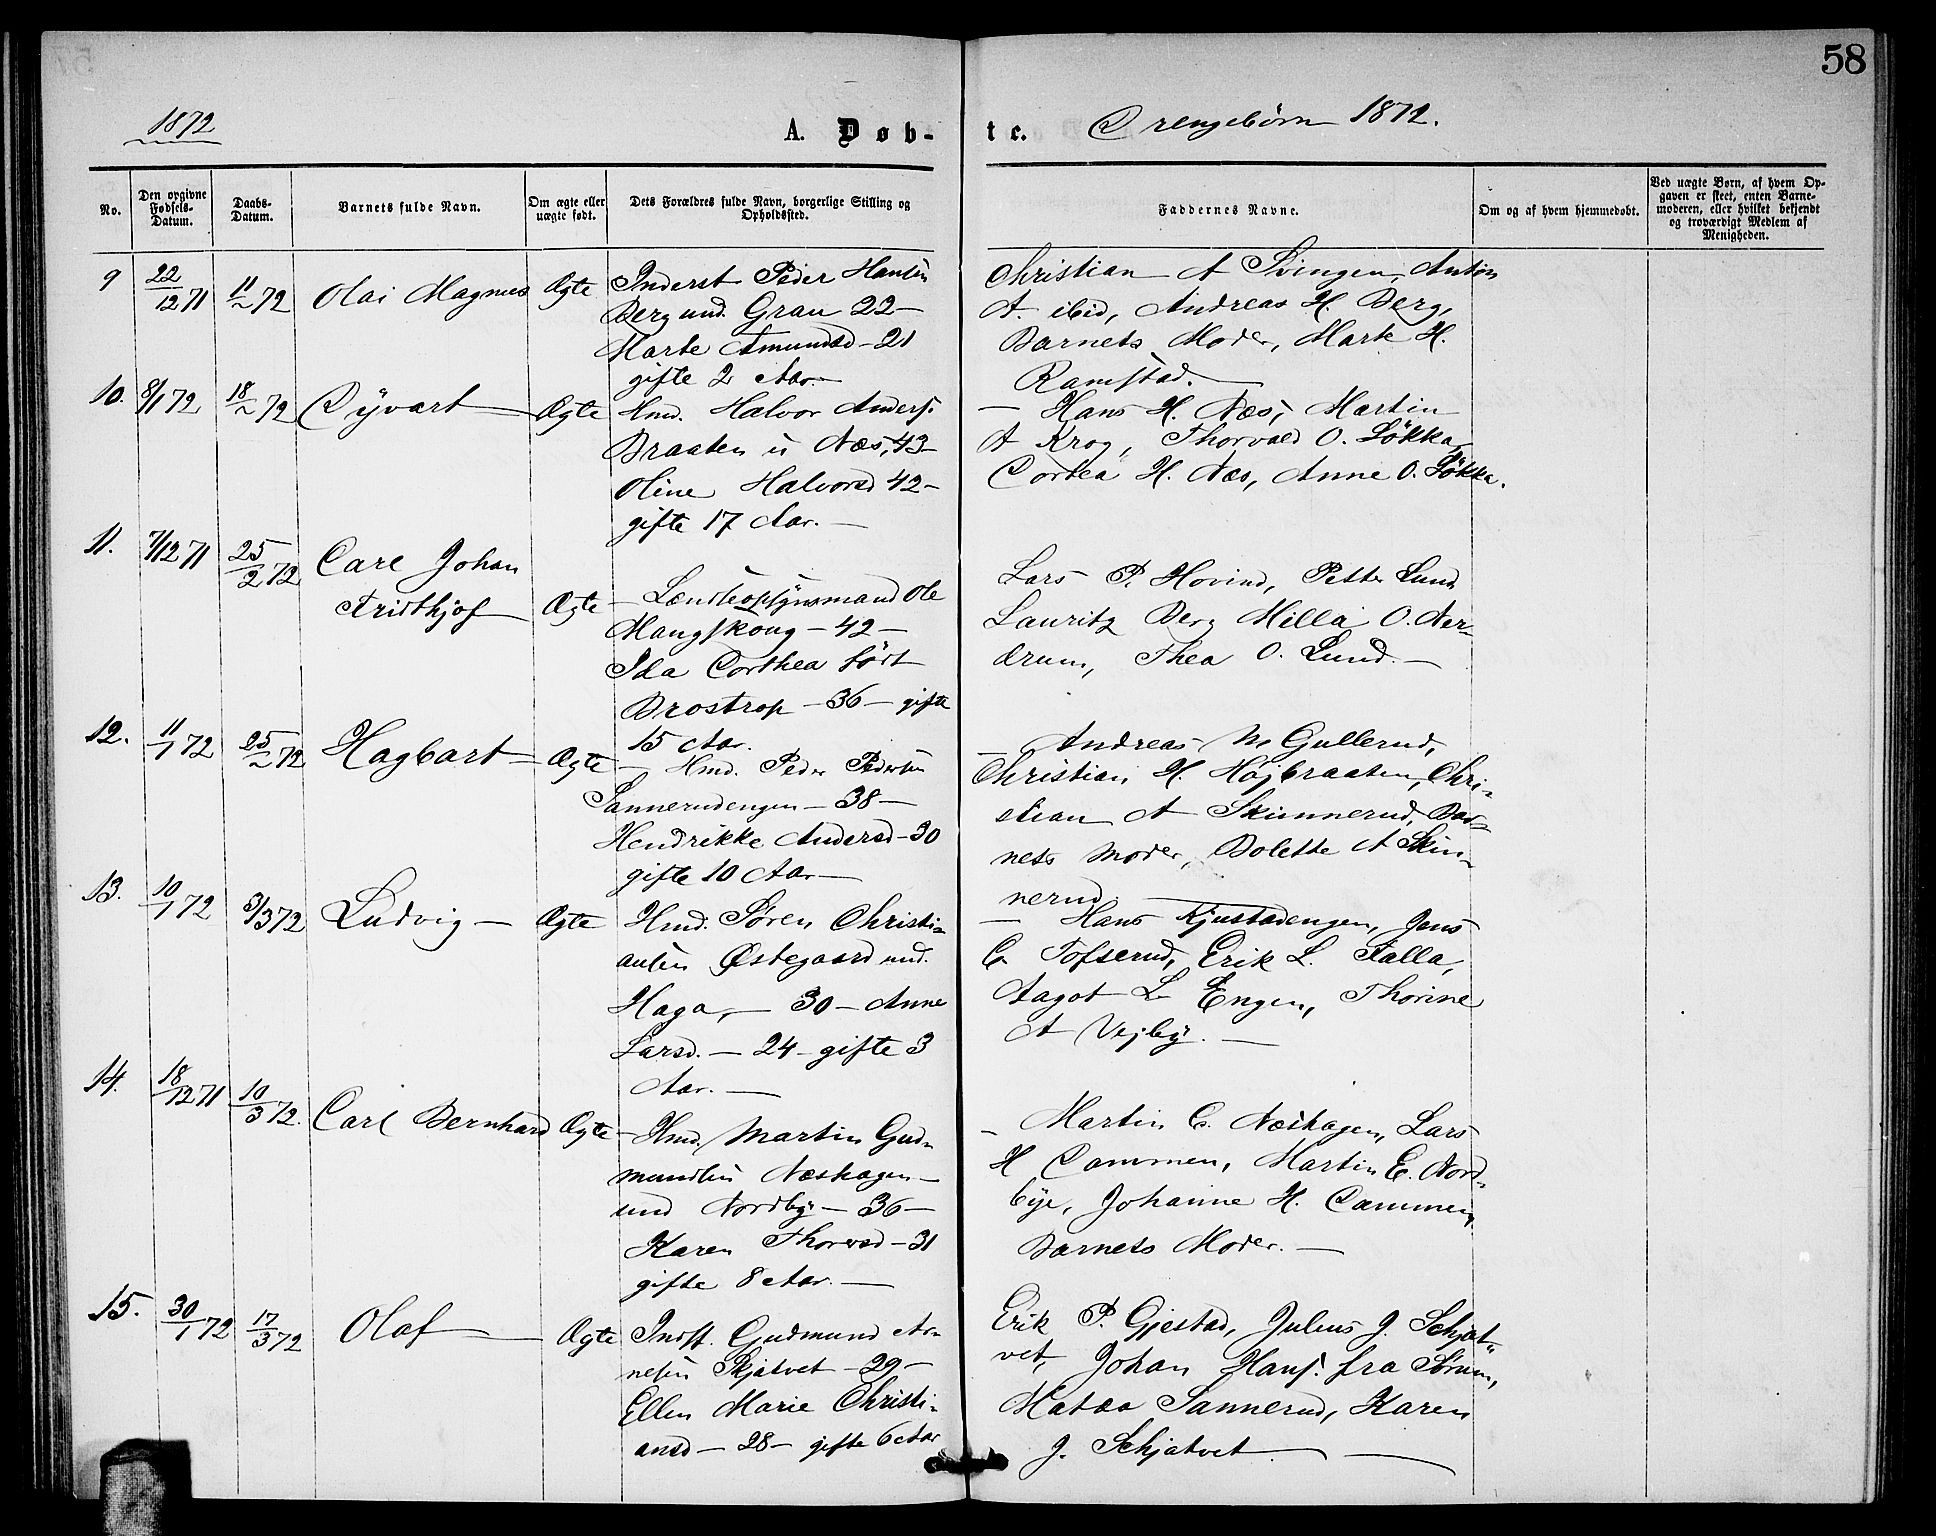 58
1872
A. Døb-
te. Drengebørn 1872.
No.
Den opgivne Fødsels-Datum.
Daabs-Datum.
Barnets fulde Navn.
Om ægte eller uægte født.
Dets Forældres fulde Navn, borgerlige Stilling og Opholdssted.
Faddernes Navne.
Om og af hvem hjemmedøbt.
Ved uægte Børn, af hvem Opgaven er skeet, enten Barnemoderen, eller hvilket bekjendt og troværdigt Medlem af Menigheden.
9 22/12 71 11/2 72 Olai Magnus Ægte Inderst Peder Hansen
Berg und. Grau 22 -
Marte Amundsd - 21
gifte 2 Aar. -
Christian A Svingen, Anton
A. ibid, Andreas H. Berg,
Barnets Moder, Marte H.
Ramstad. -
10. 8/1 72 18/2 72 Dyvart - Ægte Hmd. Halvor Anders.
Braaten u Næs, 43 -
Oline Halvorsd 42 -
gifte 17 Aar. -
- Hans H. Næs, Martin
A Krog, Thorvald O. Løkka,
Dortea H. Næs, Anne O. Løkka.
11. 7/12 71 25/2 72 Carl Johan
Fridthjof - Ægte - Lændseopsynsmand Ole
Mangskoug - 42 -
Ida Dorthea født
Brostrop - 36 - gifte
15 Aar.
Lars P. Hovind, Petter Lund
Lauritz Berg Milla O. Ner-
drum, Thea O. Lund. -
12. 11/1 72 25/2 72 Hagbart - Ægte - Hmd. Peder Pedersen
Sannerudengen - 38 -
Hendrikke Andersd - 30
gifte 10 Aar -
- Andreas M Gullerud,
Christian H. Højbraaten, Chri-
stian A Skinnerud, Bar-
nets Moder, Bolette A Skin-
nerud -
13. 10/1 72 3/3 72 Ludvig - Ægte Hmd. Søren Christi-
ansen Østegaard und.
Haga, - 30 - Anne
Larsd. - 24 - gifte 3
Aar. -
- Hans Kjustadengen, Jens
C. Tofserud, Erik L. Falla,
Aagot L Engen, Thorine
A Vejby. -
14. 18/12 71 10/3 72. Carl Bernhard Ægte - Hmd. Martin Gud-
mundsen Næshagen -
und Nordby - 36 -
Karen Thorersd - 31
gifte 8 Aar. -
- Martin C. Næshagen, Lars
H Dammen, Martin E. Nord-
bye, Johanne H. Dammen,
Barnets Moder. -
15. 30/1 72 17/3 72 Olaf - Ægte Indst. Gudmund Ar-
nesen Skjatvet - 29 -
Ellen Marie Christi-
ansd - 28 - gifte 6 Aar
Erik P. Gjestad, Julius J. Schjat-
vet, Johan Hans. fra Sørum,
Matea Sannerud, Karen
J. Schjatvet -